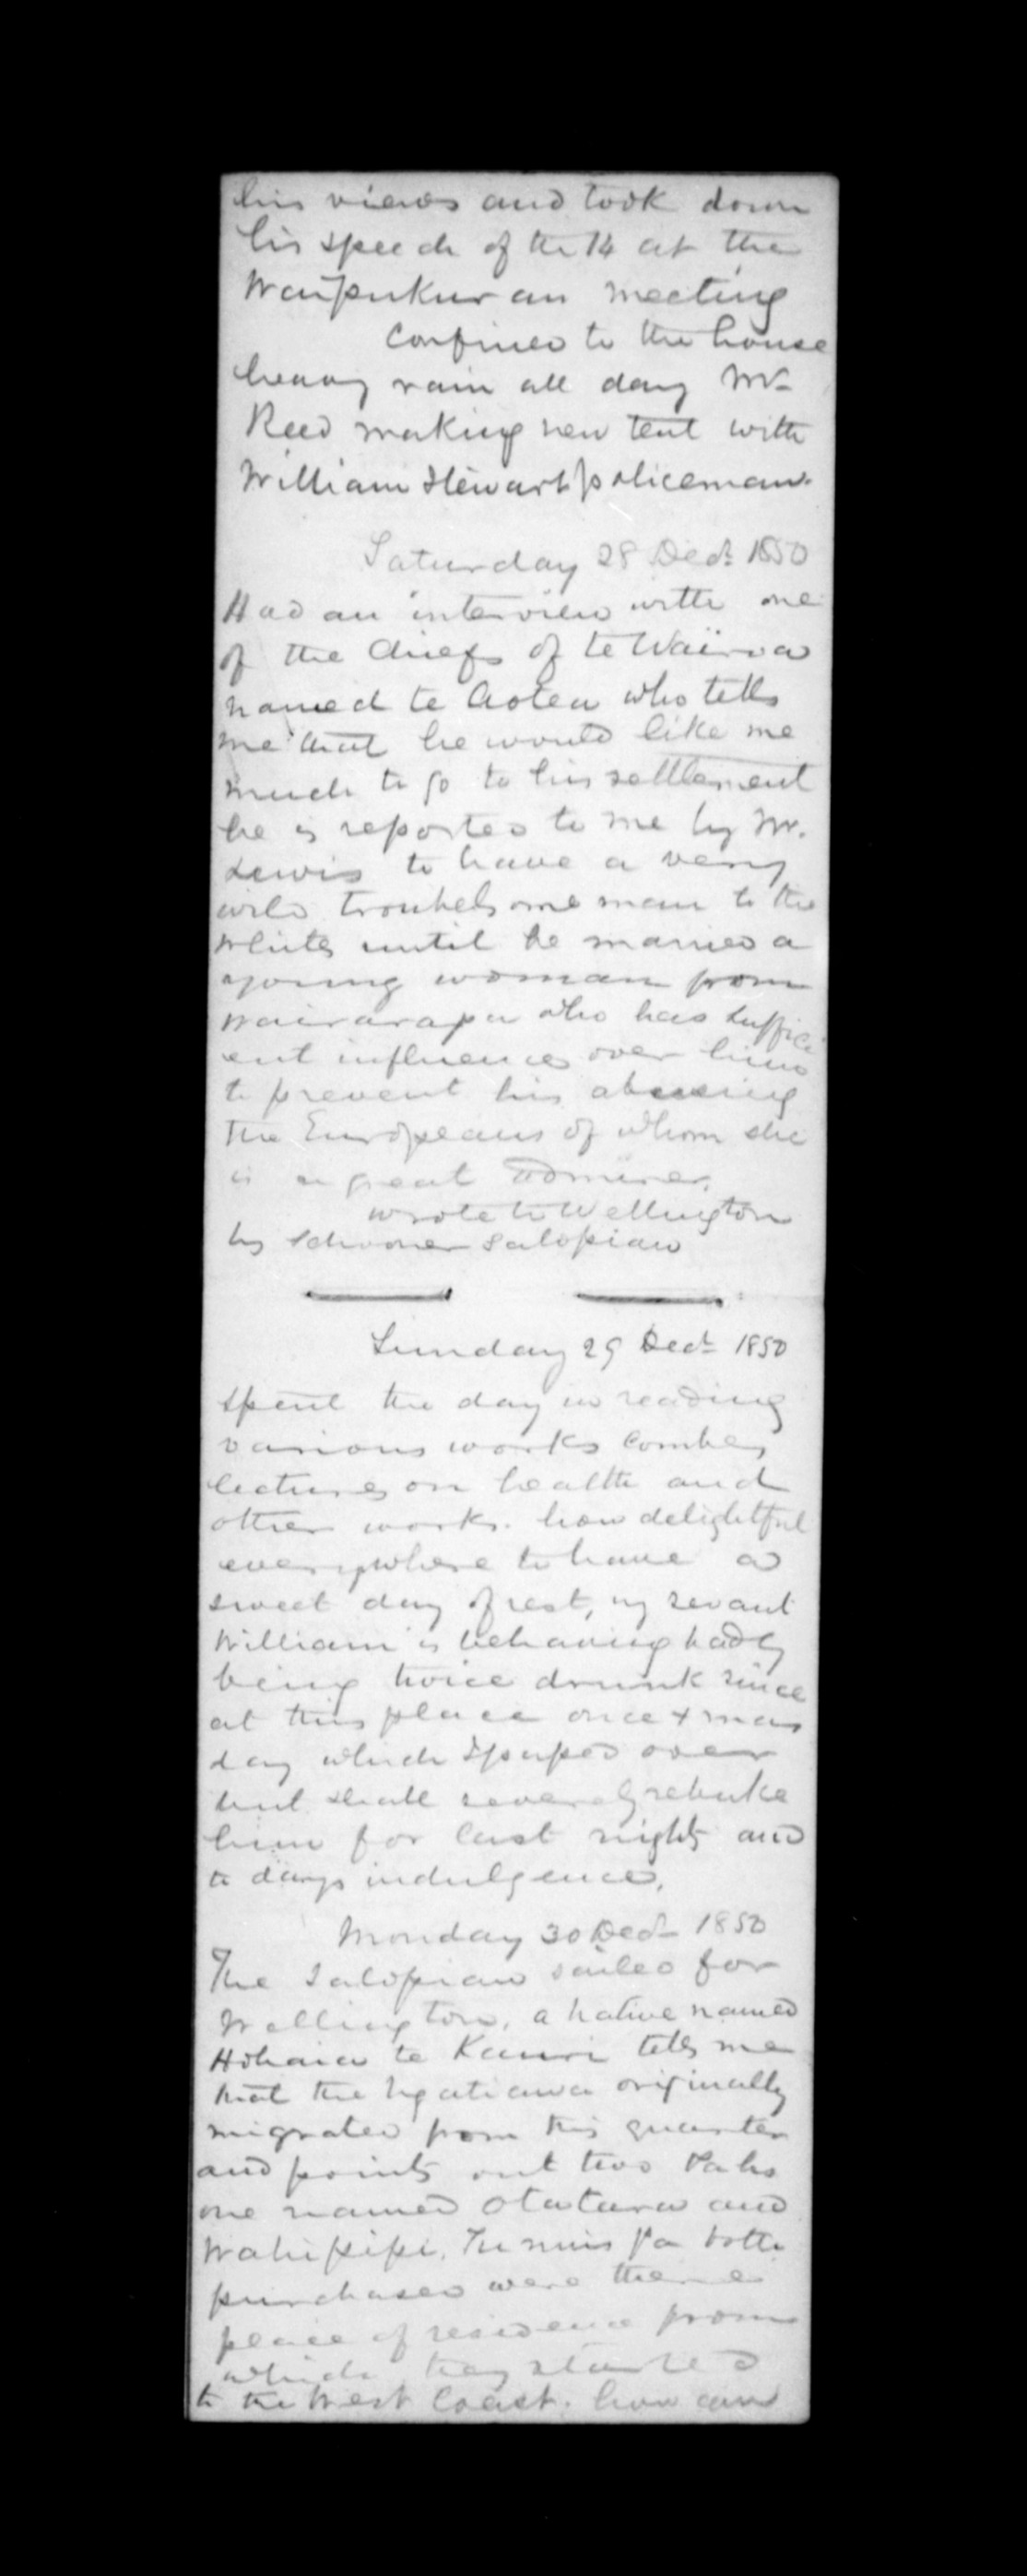 his views and took down
his speech of the 14 at the
Waipukurau meeting
Confined to the house
heavy rain all day Mr
Reed making new tent with
William Stewart policeman.
Saturday 28 Decr 1850
Had an interview with one
of the chiefs of te Wairoa
named te Aotea who tells
me that he would like me
much to go to his settlement
he is reported to me by Mr.
Lewis to have a very
wild troubelsome man to the
whites until he married a
young woman from
Wairarapa who has suffici
ent influence over him
to prevent his abusing
the Europeans of whom she
is a great admirer.
wrote to Wellington
by schooner Salopian
Sunday 29 Decr 1850
Spent the day in reading
various works Combes
lectures on health and
other works. how delightful
everywhere to have a
sweet day of rest, my sevant
William is behaving badly
being twice drunk since
at this place once Xmas
day which I passed over
but shall severely rebuke
him for last nights and
to days indulgence.
Monday 30 Decr 1850
The Salopian sailed for
Wellington, a native named
Hohaia te
tells me
that the Ngatiawa originally
migrated from this quarter
and points out two Pahs
one named Otatara and
Wahipipi.
pa both
purchased were there
place of residence from
which they started
to the West Coast.